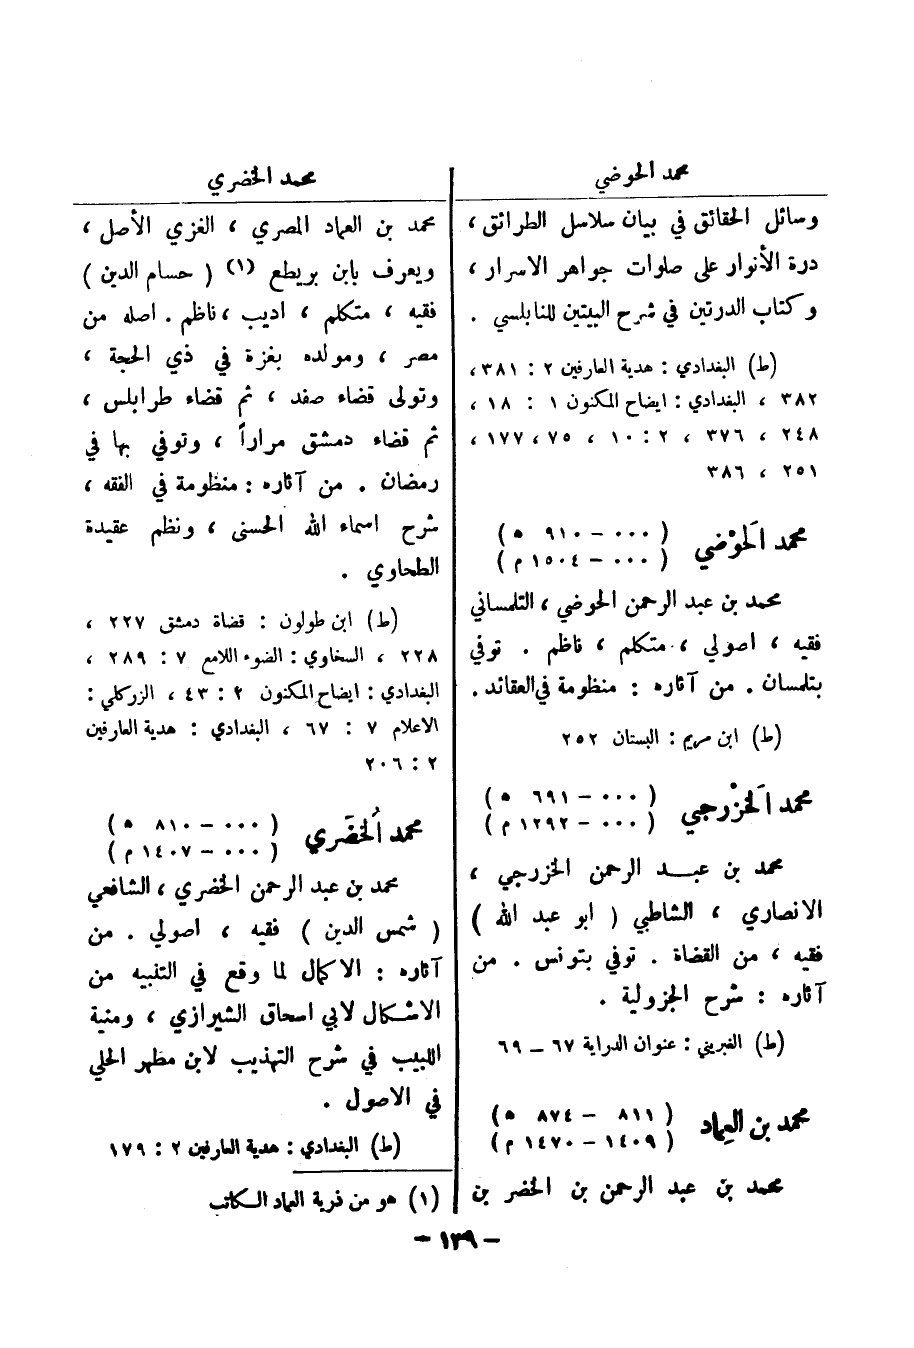 محمد الحوضي
وسائل الحقائق في بيان سلاسل الطرائق ،
درة الأنوار على صلوات جواهر الاسرار ،
وكتاب الدرتين في شرح البيتين للنابلسي .
(ط) البغدادي : هدية العارفين ٢ : ٣٨١ ،
٣٨٢ ، البغدادي : ايضاح المكنون ١ : ١٨ ،
٢٤٨ ، ٣٧٦ ، ٢ : ١٠ ، ٧٥ ، ١٧٧ ،
٢٥١ ، ٣٨٦
محمد الَحوْضي ( ٠٠٠ – ٩١٠ ه )
( ٠٠٠ – ١٥٠٤ م )
محمد بن عبد الرحمن الحوضي ، التلمساني
فقيه ، اصولي ، متكلم ، ناظم . توفي
بتلمسان . من آثاره : منظومة في العقائد .
(ط) ابن مريم : البستان ٢٥٢
محمد الَخزْرجي ( ٠٠٠ – ٦٩١ ه )
( ٠٠٠ – ١٢٩٢ م )
محمد بن عبد الرحمن الخزرجي ،
الانصاري ، الشاطبي ( ابو عبد الله )
فقيه ، من القضاة . توفي بتونس . من
آثاره : شرح الجزولية .
(ط) الغبريني : عنوان الدراية ٦٧ – ٦٩
محمد بن العِماد ( ٨١١ – ٨٧٤ ه )
( ١٤٠٩ – ١٤٧٠ م )
محمد بن عبد الرحمن بن الخضر بن
محمد الخضري
محمد بن العماد المصري ، الغزي الأصل ،
ويعرف بابن بريطع (١) ( حسام الدين )
فقيه ، متكلم ، اديب ، ناظم . اصله من
مصر ، ومولده بغزة في ذي الحجة ،
وتولى قضاء صفد ، ثم قضاء طرابلس ،
ثم قضاء دمشق مراراً ، وتوفي بها في
رمضان . من آثاره : منظومة في الفقه ،
شرح اسماء الله الحسنى ، ونظم عقيدة
الطحاوي .
(ط) ابن طولون : قضاة دمشق ٢٢٧ ،
٢٢٨ ، السخاوي : الضوء اللامع ٧ : ٢٨٩ ،
البغدادي : ايضاح المكنون ٢ : ٤٣ ، الزركلي :
الاعلام ٧ : ٦٧ ، البغدادي : هدية العارفين
٢ : ٢٠٦
محمد الُخضَري ( ٠٠٠ – ٨١٠ ه )
( ٠٠٠ – ١٤٠٧ م )
محمد بن عبد الرحمن الخضري ، الشافعي
( شمس الدين ) فقيه ، اصولي . من
آثاره : الاكمال لما وقع في التنبيه من
الاشكال لابي اسحاق الشيرازي ، ومنية
اللبيب في شرح التهذيب لابن مطهر الحلي
في الاصول .
(ط) البغدادي : هدية العارفين ٢ : ١٧٩
(١) هو من ذرية العماد الكاتب
– ١٣٩ –